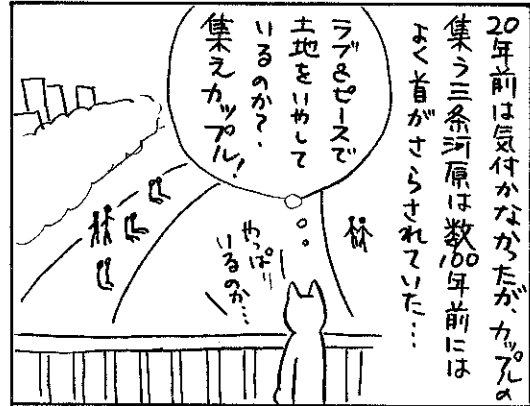 20年前は気付かなかったが、カップルの
集う三条河原は数100年前には
よく首がさらされていた…
ラブ&ピースで
土地をいやして
いるのか?
集えカップル!
やっぱり
いるのか…